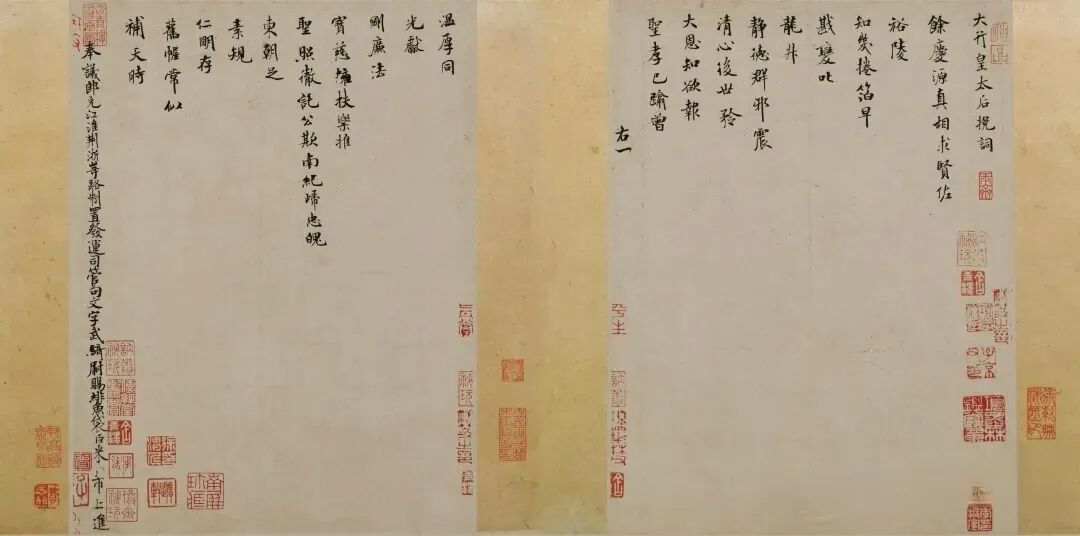 大行皇太后挽詞
餘慶源真相求賢佐
裕陵
知幾捲箔早
戡變叱
龍升
靜德群邪震
清心後世矜
大恩知欲報
聖孝已踰曾
右一
溫厚同
光獻
剛廉法
寶慈擁扶樂推
聖照徹詑公欺南紀歸忠魄
東朝足
素規
仁明存
舊幄常似
補天時
奉議郎充江淮荊浙等路制置發運司管句文字武騎尉賜緋魚袋臣米芾上進